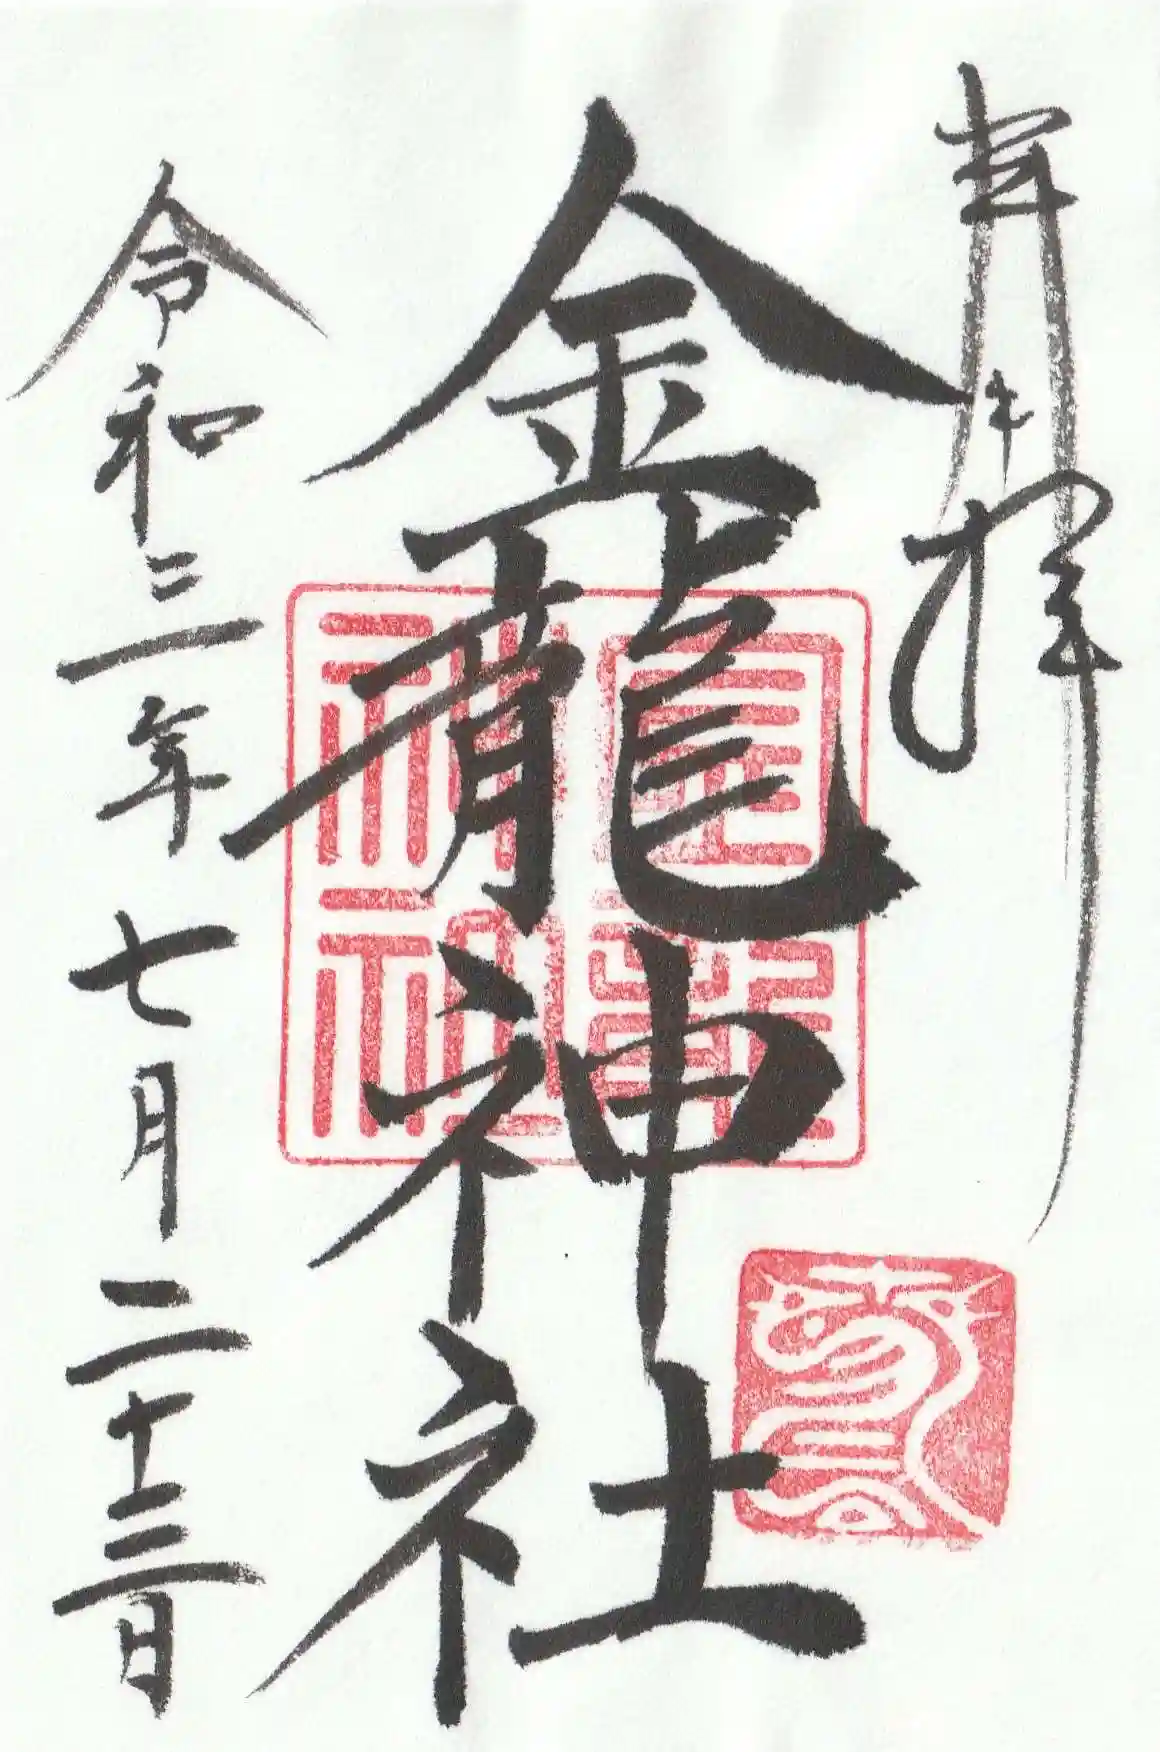 奉拝
金龍神社
金龍神社
令和三年七月二十三日